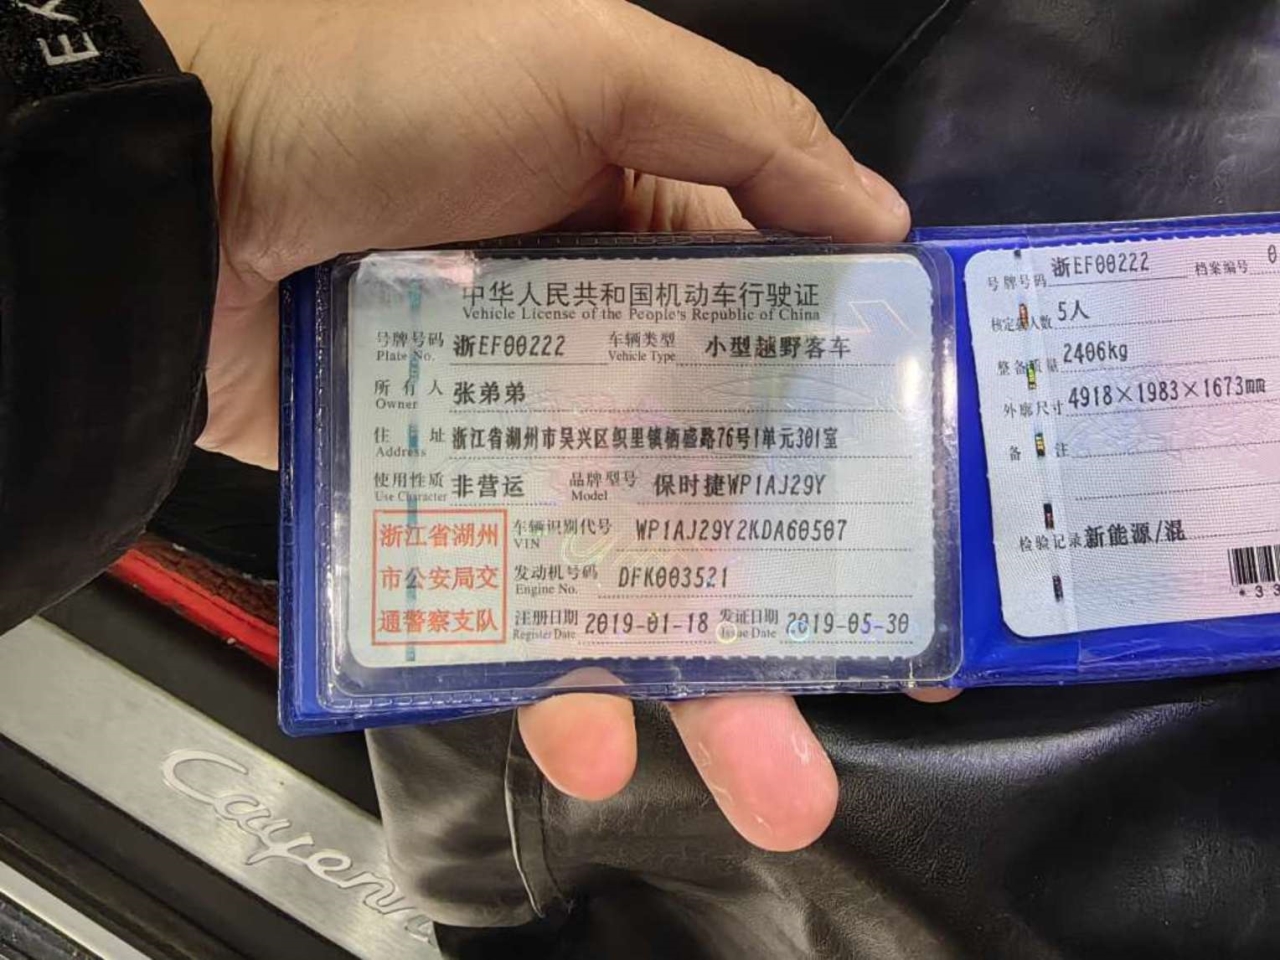 中华人民共和国机动车行驶证
Vehicle License of the People's Republic of China
号牌号码 浙EF00222 车辆类型 小型越野客车
Plate No. Vehicle Type
所有人 张弟弟
Owner
住址 浙江省湖州市吴兴区织里镇栖盛路76号1单元301室
Address
使用性质 非营运 品牌型号 保时捷WP1AJ29Y
Use Character Model
浙江省湖州
市公安局交
通警察支队
车辆识别代号 WP1AJ29Y2KDA60507
VIN
发动机号码 DFK003521
Engine No.
注册日期 2019-01-18 发证日期 2019-05-30
Register Date Issue Date
号牌号码 浙EF00222 档案编号 0
核定载人数 5人
整备质量 2406kg
外廓尺寸 4918×1983×1673mm
备注
检验记录 新能源/混
*33
Cayenn